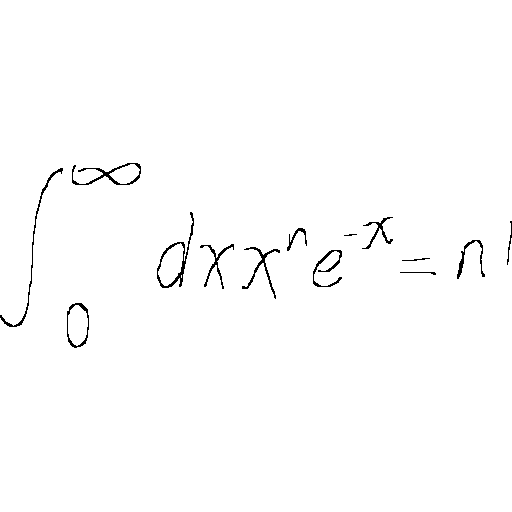 \int_{0}^{\infty} dx x^{n} e^{-x} = n!